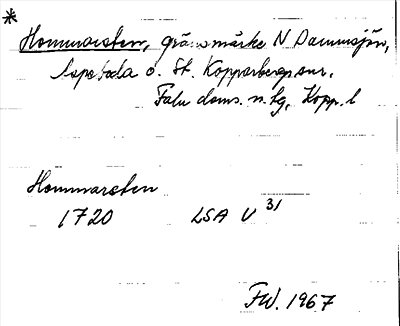 * Hommarsten, gränsmärke N Dammsjön,
Aspeboda o. St. Kopparbergs snr,
Falu doms. n. tg, Kopp. l
Hommarsten
1720 LSA U 31
FW. 1967